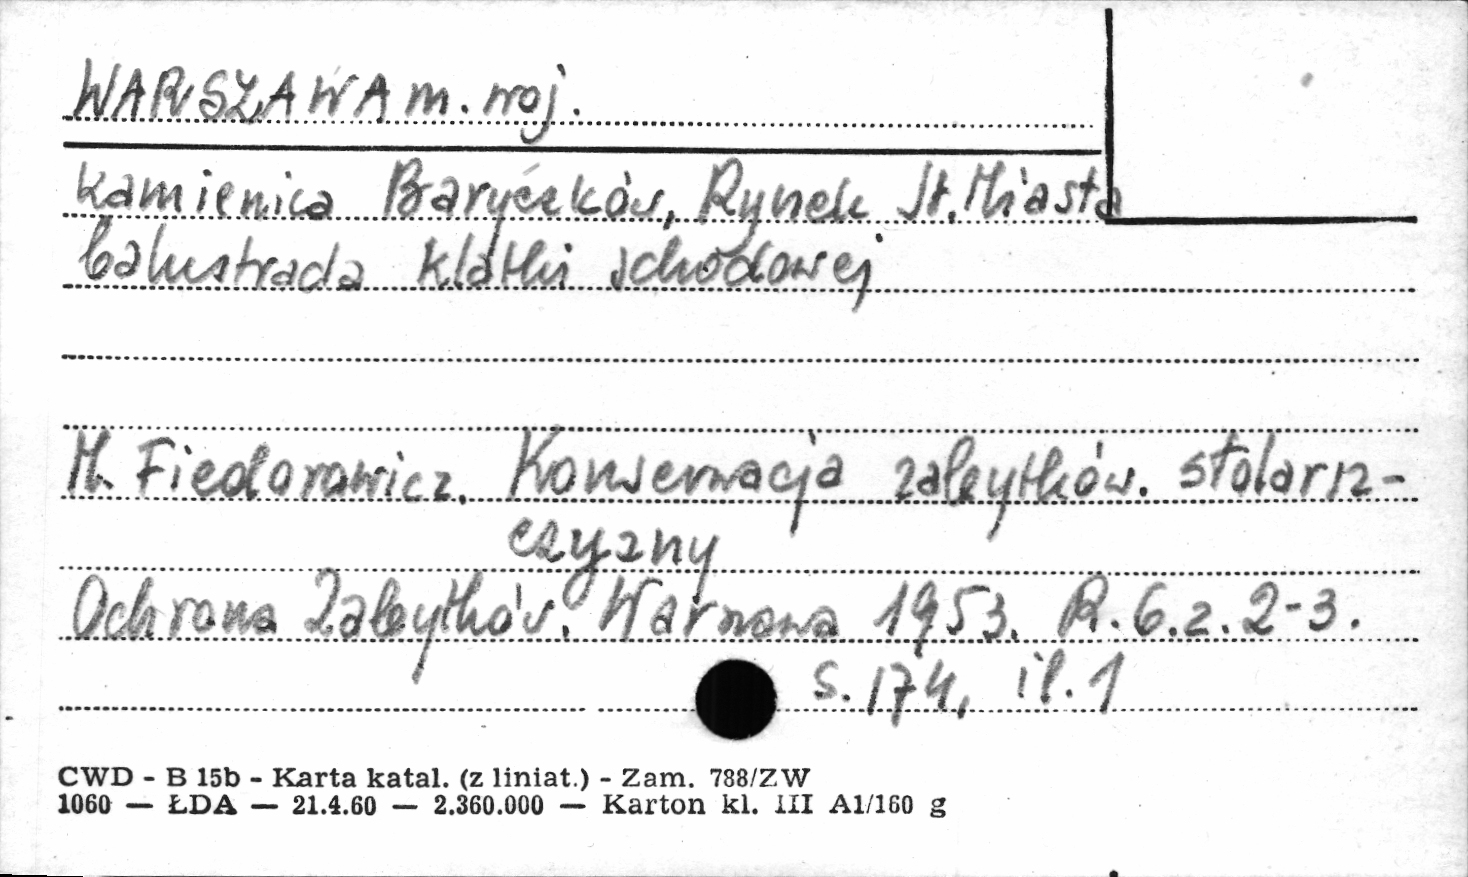 WARSZAWA m. woj.
kamienica Baryczków, Rynek St. Miasta
balustrada klatki schodowej
M. Fiedorowicz. Konserwacja zabytków. stolarsz-
czyzny
Ochrona Zabytków. Warszawa 1953. R. 6. z. 2-3.
s. 174, il. 1
CWD - B 15b - Karta katal. (z liniat.) - Zam. 788/ZW
1060 — ŁDA — 21.4.60 — 2.360.000 — Karton kl. III A1/160 g